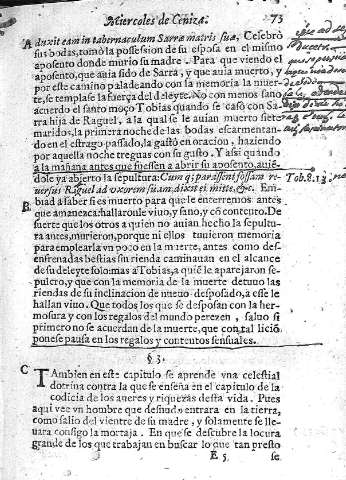 Miercoles de Ceniza. 73
A duxit eam in tabernaculum Sarræ matris suæ, Celebrò
sus bodas, tomò la possession de su esposa en el mismo
aposento donde murio su madre. Para que viendo el
aposento, que auia sido de Sara, y que auia muerto, y
por este camino paladeando con la memoria la muer-
te, se templasse la fuerça del deleyte. No con menos sano
acuerdo el santo moço Tobias quando se casò con Sa-
rra hija de Raguel, a la qual se le auian muerto siete
maridos, la primera noche de las bodas escarmentan-
do en el estrago passado, la gastò en oracion, haziendo
por aquella noche treguas con su gusto. Y assi quando
a la mañana antes que fuessen a abrir su aposento, auiē
dole ya abierto la sepultura: Cum
Tob. 8. 13.
uersus Raguel ad vxorem suam, dixit ei mitte, &c. Em-
B
biad a saber si es muerto para que le enterremos antes
que amanezca: hallaronle viuo, y sano, y cō contento. De
suerte que los otros a quien no auian hecho la sepultu
ra antes, murieron, porque ni ellos tuuieron memoria
para emplearla vn poco en la muerte, antes como des-
enfrenadas bestias sin rienda caminauan en el alcance
de su deleyte solo: mas a Tobias, a quiē le aparejaron se-
pulcro, y que con la memoria de la muerte detuuo las
riendas de su inclinacion de nueuo desposado, a esse le
hallan viuo. Que todos los que se desposan con la her-
mosura y con los regalos del mundo perezen, saluo si
primero no se acuerdan de la muerte, que con tal liciō,
ponese pausa en los regalos y contentos sensuales.
§ 3.
C
TAmbien en este capitulo se aprende vna celestial
dotrina contra la que se enseña en el capitulo de la
codicia de los aueres y riquezas desta vida. Pues
aqui vee vn hombre que desnudo entrara en la tierra,
como salio del vientre de su madre, y solamente se lle-
uara consigo la mortaja. En que se descubre la locura
grande de los que trabajan en buscar lo que tan presto
E 5. se